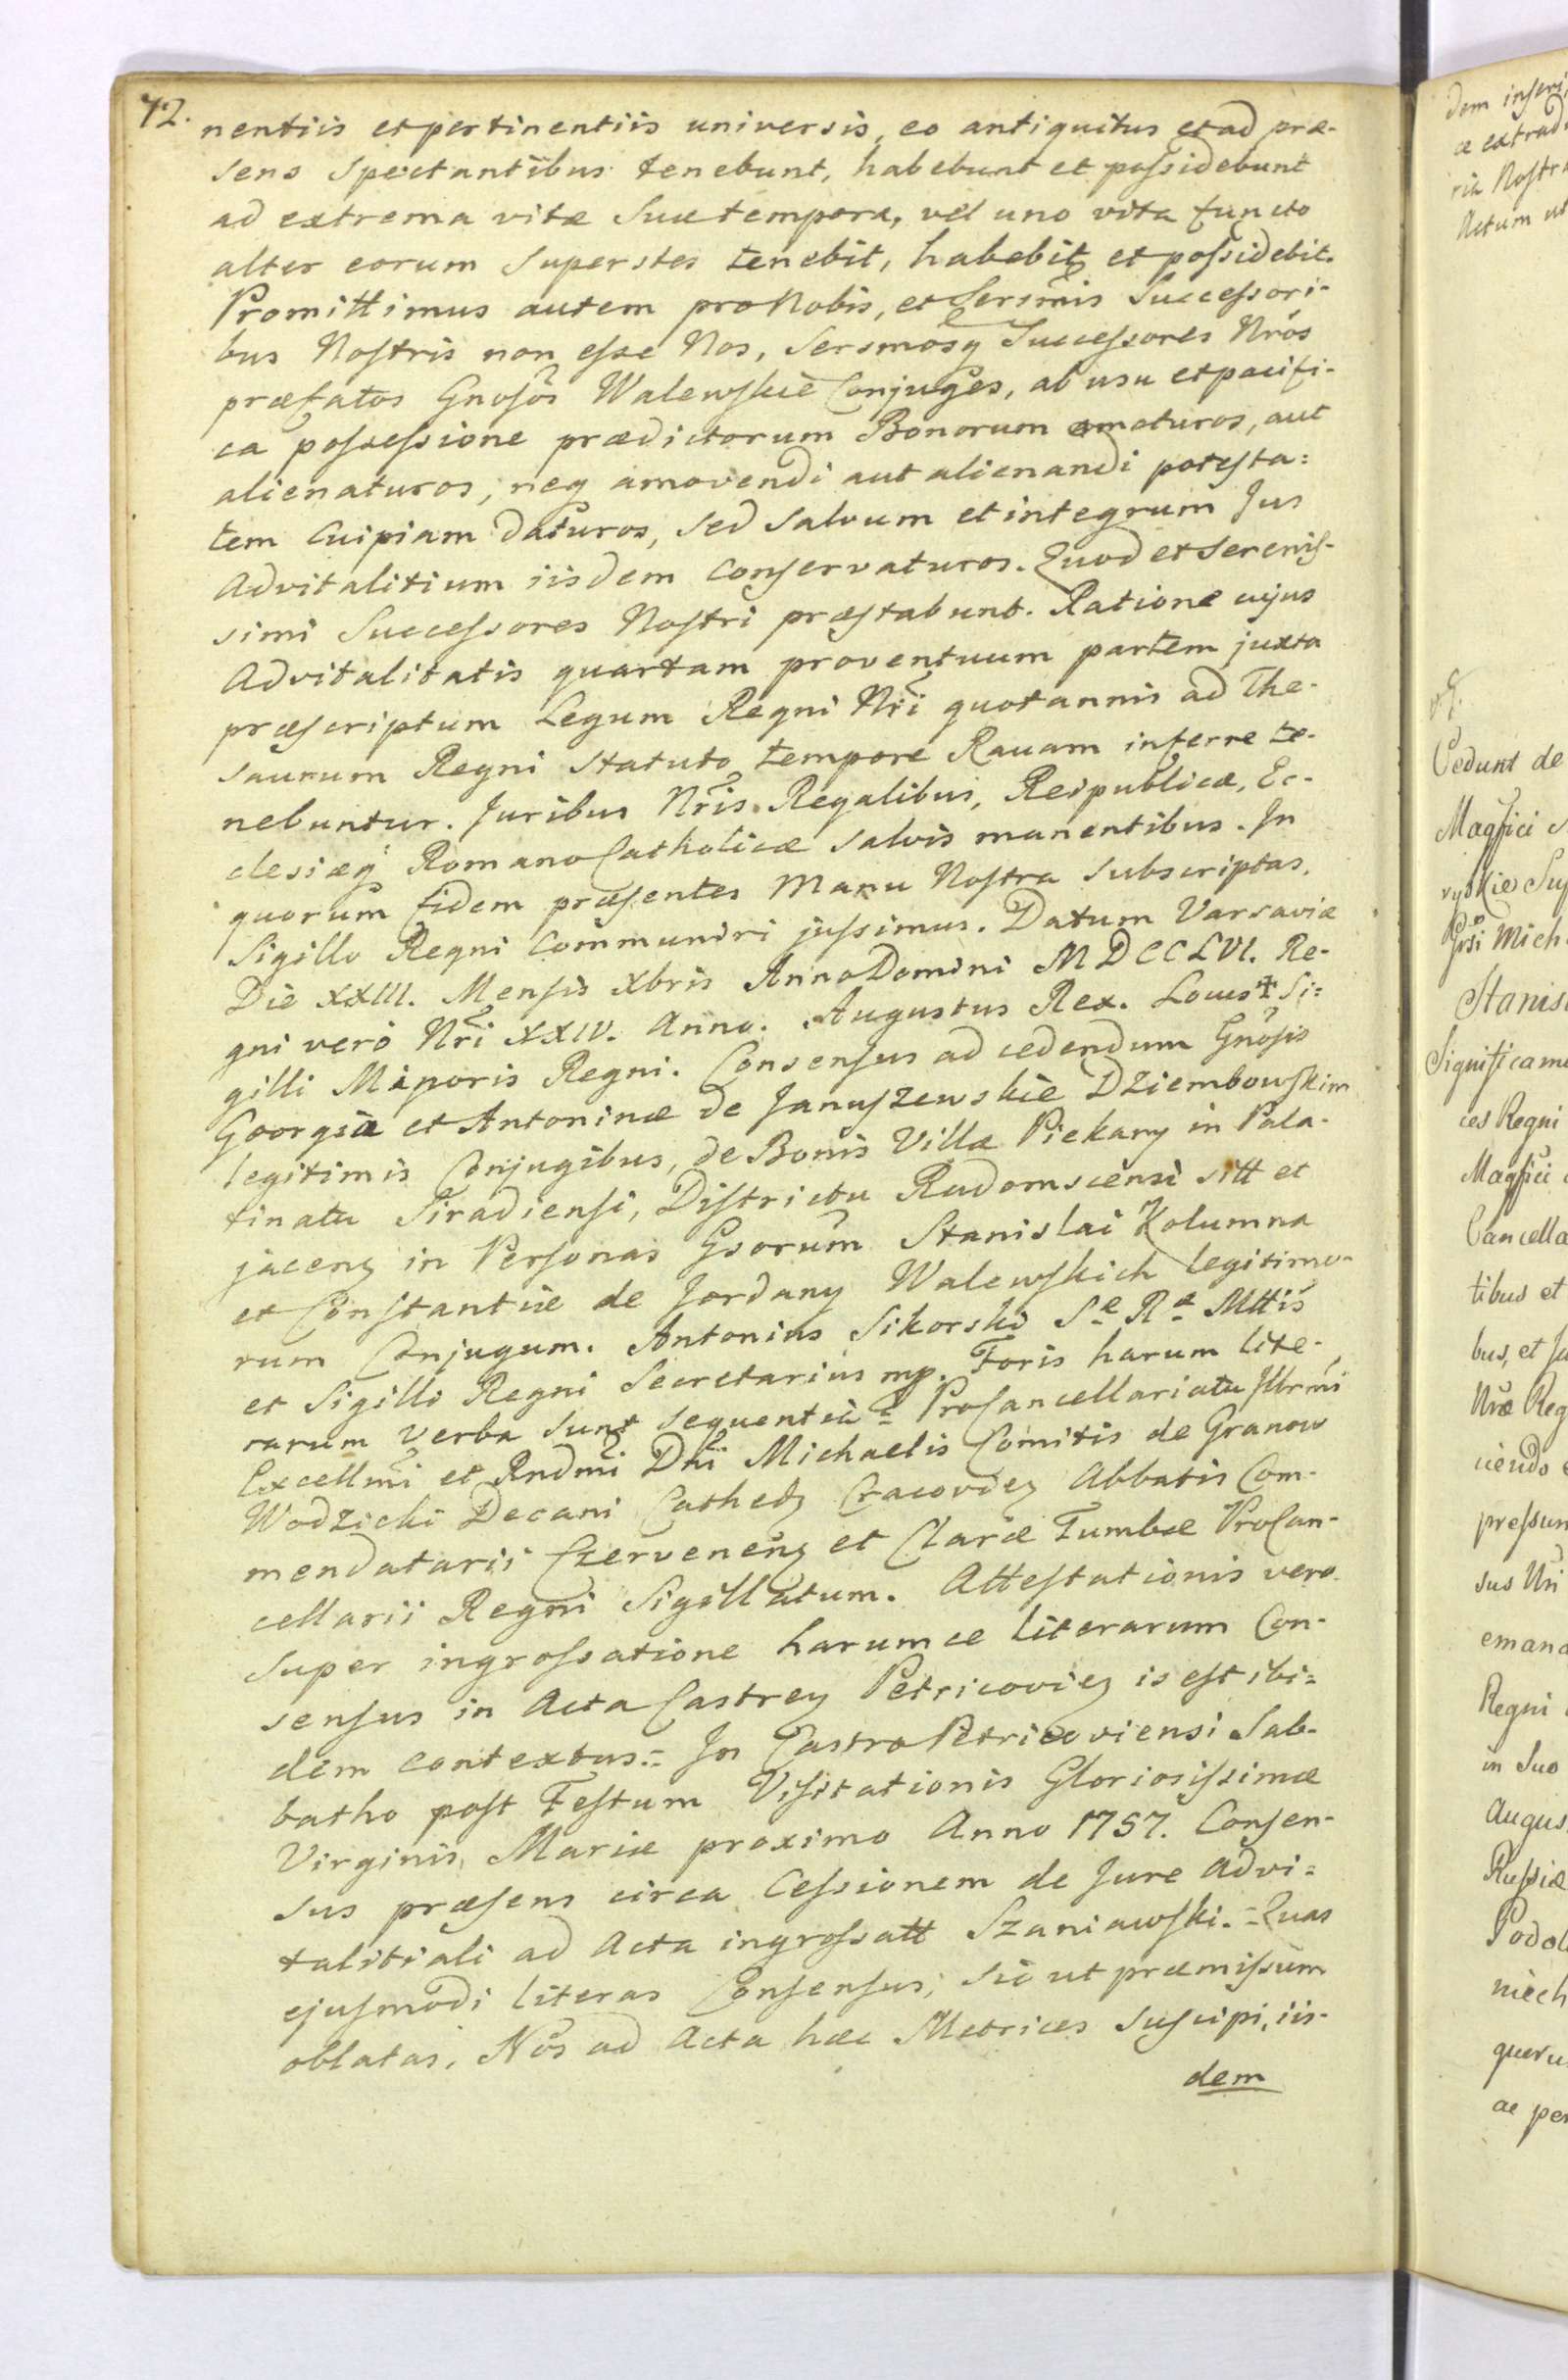 72.
nentiis et pertinentiis universis, eo antiquitus et ad præ-
sens spectantibus tenebunt, habebunt et possidebunt
ad extrema vitæ suæ tempora, vel uno vita functo
alter eorum superstes tenebit, habebit et possidebit.
Promittimus autem pro Nobis, et Sersmis Successori-
bus Nostris non esse Nos, Sersmosq Successores Nros
præfatos Gnosos Walewskie Conjuges, ab usu et pacifi-
ca possessione prædictorum Bonorum amoturos, aut
alienaturos, neq amovendi aut alienandi potesta=
tem cuipiam daturos, sed salvum et integrum Jus
Advitalitium iisdem conservaturos. Quod et Serenis-
simi Successores Nostri præstabunt. Ratione cujus
Advitalitatis quartam proventuum partem juxta
præscriptum Legum Regni Nri quotannis ad The-
saurum Regni statuto tempore Ravam inferre te-
nebuntur. Juribus Nris Regalibus, Reipublicæ, Ec-
clesiæq Romano Catholicæ salvis manentibus. In
quorum fidem præsentes Manu Nostra subscriptas,
Sigillo Regni communiri jussimus. Datum Varsaviæ
Die XXIII. Mensis Xbris Anno Domini MDCCLVI. Re-
gni vero Nri XXIV. Anno. Augustus Rex. Locus ✝ Si=
gilli Minoris Regni. Consensus ad cedendum Gnosis
Georgio et Antoninæ de Januszewskie Dziembowskim
legitimis Conjugibus, de Bonis Villæ Piekary in Pala-
tinatu Siradiensi, Districtu Radomscensi sitt et
jacenz in Personas Gsorum Stanislai Kolumna
et Constantiæ de Jordany Walewskich legitimo-
rum Conjugum. Antonius Sikorski Sæ Ræ Mttis
et Sigilli Regni Secretarius mp. Foris harum lite-
rarum verba sunt sequentia = Procancellariatu Illrmi
Excellmi et Rndmi Dni Michaelis Comitis de Granow
Wodzicki Decani Cathedz Cracoviez Abbatis Com-
mendatarii Czervenenz et Claræ Tumbæ ProCan-
cellarii Regni Sigillatum. Attestationis vero
super ingrossatione harumce literarum Con-
sensus in Acta Castrez Petricoviez is est ibi=
dem contextus.= In Castro Petricoviensi Sab-
batho post Festum Visitationis Gloriosissimæ
Virginis Mariæ proximo Anno 1757. Consen-
sus præsens circa Cessionem de Jure Advi=
talitiali ad Acta ingrossatt Szaniawski.= Quas
ejusmodi literas Consensus, sic ut præmissum
oblatas, Nos ad Acta hæc Metrices suscipi, iis-
dem
dem inseri
ac extrad
ria Nostra
Actum ut
Cedunt de
Magfici
Grsi Mich
Stanis
Significam
ces Regni
Magfici
Cancella
tibus et
bus, et
Nræ Reg
ciendo
pressum
sus Nri
emana
Regni
in suo
Augus
Russiæ
Podol
niech
queru
ac per